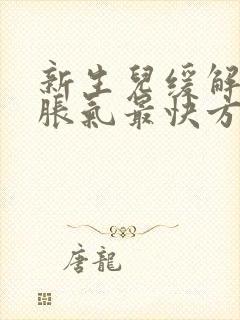 新生兒緩解
脹氣最快方
唐龍